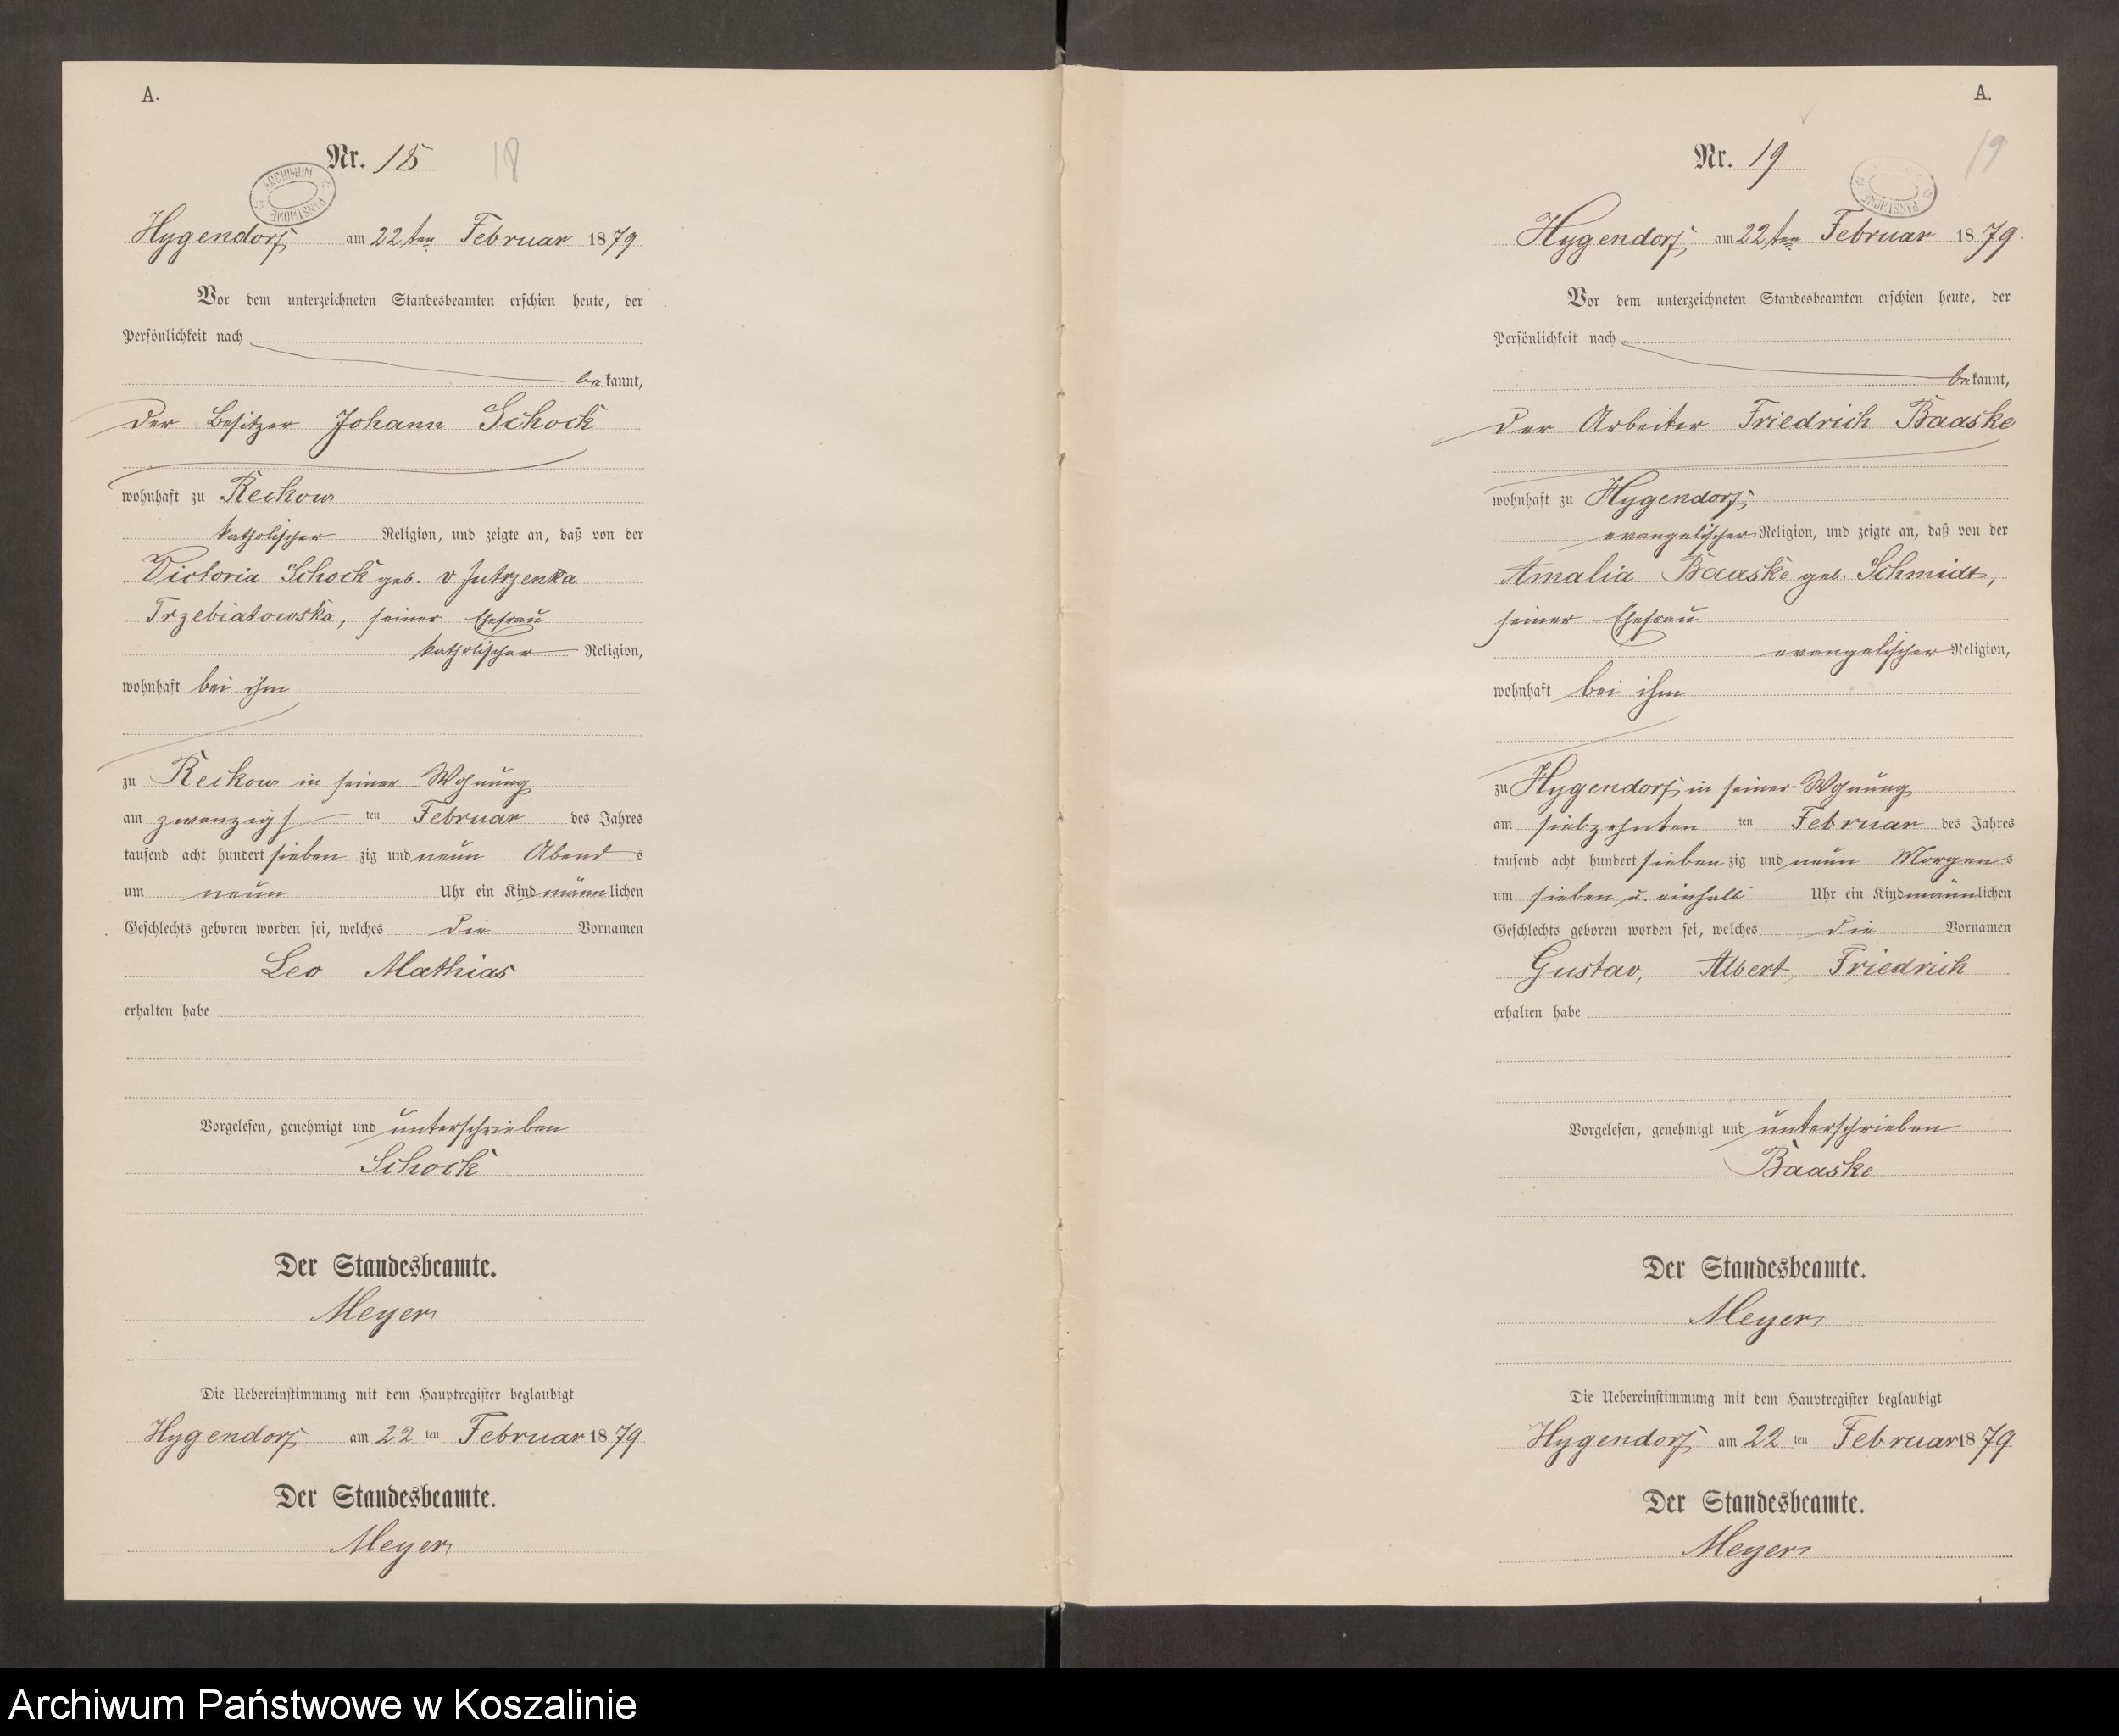 A.
Nr. 18
18
ARCHIWUM PAŃSTWOWE
Hygendorf am 22ten Februar 1879
Vor dem unterzeichneten Standesbeamten erschien heute, der
Persönlichkeit nach
bekannt,
der Besitzer Johann Schock
wohnhaft zu Reckow
katholischer Religion, und zeigte an, daß von der
Victoria Schock geb. v Jutrzenka
Trzebiatowska, seiner Ehefrau
katholischer Religion,
wohnhaft bei ihm
zu Reckow in seiner Wohnung
am zwanzigsten Februar des Jahres
tausend acht hundert siebenzig und neun Abends
um neun Uhr ein Kind männlichen
Geschlechts geboren worden sei, welches die Vornamen
Leo Mathias
erhalten habe
Vorgelesen, genehmigt und unterschrieben
Schock
Der Standesbeamte.
Meyer
Die Uebereinstimmung mit dem Hauptregister beglaubigt
Hygendorf am 22 ten Februar 1879
Der Standesbeamte.
Meyer
A.
Nr. 19
19
PAŃSTWOWE
Hygendorf am 22ten Februar 1879.
Vor dem unterzeichneten Standesbeamten erschien heute, der
Persönlichkeit nach
bekannt,
der Arbeiter Friedrich Baaske
wohnhaft zu Hygendorf
evangelischer Religion, und zeigte an, daß von der
Amalia Baaske geb. Schmidt,
seiner Ehefrau
evangelischer Religion,
wohnhaft bei ihm
zu Hygendorf in seiner Wohnung
am siebzehnten ten Februar des Jahres
tausend acht hundert siebenzig und neun Morgens
um sieben u. einhalb Uhr ein Kind männlichen
Geschlechts geboren worden sei, welches die Vornamen
Gustav, Albert, Friedrich
erhalten habe
Vorgelesen, genehmigt und unterschrieben
Baaske
Der Standesbeamte.
Meyer
Die Uebereinstimmung mit dem Hauptregister beglaubigt
Hygendorf am 22 ten Februar 1879.
Der Standesbeamte.
Meyer
Archiwum Państwowe w Koszalinie